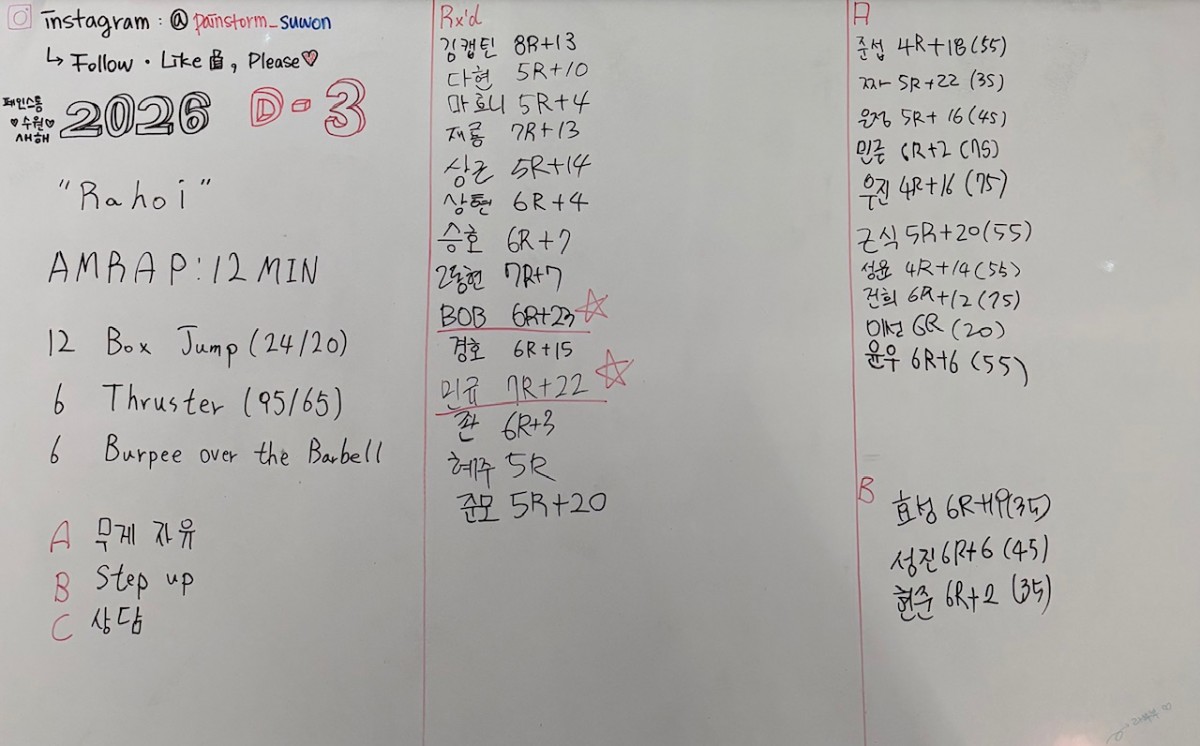 instagram : @painstorm_suwon
↳ Follow · Like, Please♡
페인스톰
♡수원♡
새해
2026 D-3
"Rahoi"
AMRAP:12MIN
12 Box Jump (24/20)
6 Thruster (95/65)
6 Burpee over the Barbell
A 무게 자유
B Step up
C 상담
Rx'd
김캡틴 8R+13
다현 5R+10
마호니 5R+4
재룡 7R+13
상근 5R+14
상현 6R+4
승호 6R+7
동현 7R+7
BOB 6R+23 ☆
경호 6R+15
민규 7R+22 ☆
좐 6R+3
혜주 5R
준모 5R+20
A
준섭 4R+18(55)
짜 5R+22 (35)
은정 5R+16(45)
6R+2 (75)
우진 4R+16 (75)
근식 5R+20(55)
성윤 4R+14(55)
건희 6R+12(75)
미선 6R (20)
윤우 6R+6 (55)
B
효성 6R+19(35)
성진 6R+6 (45)
현준 6R+2 (35)